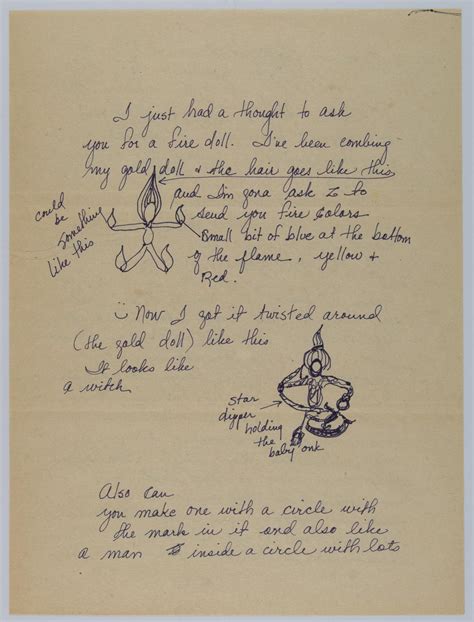 I just had a thought to ask
you for a fire doll. I've been combing
my gold doll & the hair goes like this
and I'm gona ask Z to
send you fire colors
small bit of blue at the bottom
of the flame, yellow &
Red.
could
be
something
like this
Now I got it twisted around
(the gold doll) like this
It looks like
a witch
star
dipper
holding
the
baby onk
Also can
you make one with a circle with
the mark in it and also like
a man inside a circle with lots